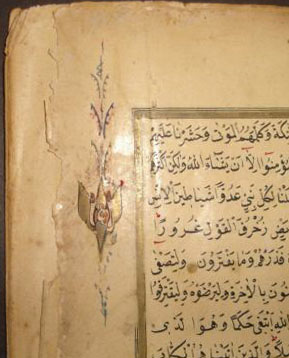 وَكَلَّمَهُمُ الْمَوْتٰى وَحَشَرْنَا عَلَيْهِمْ
اِلَّا اَنْ يَشَاءَ اللّٰهُ وَلٰكِنَّ اَكْثَرَهُمْ
لِكُلِّ نَبِيٍّ عَدُوًّا شَيَاطِينَ الْاِنْسِ
بَعْضٍ زُخْرُفَ الْقَوْلِ غُرُورًا
فَذَرْهُمْ وَمَا يَفْتَرُونَ وَلِتَصْغٰى
بِالْاٰخِرَةِ وَلِيَرْضَوْهُ وَلِيَقْتَرِفُوا
اللّٰهِ اَبْتَغِي حَكَمًا وَهُوَ الَّذِي